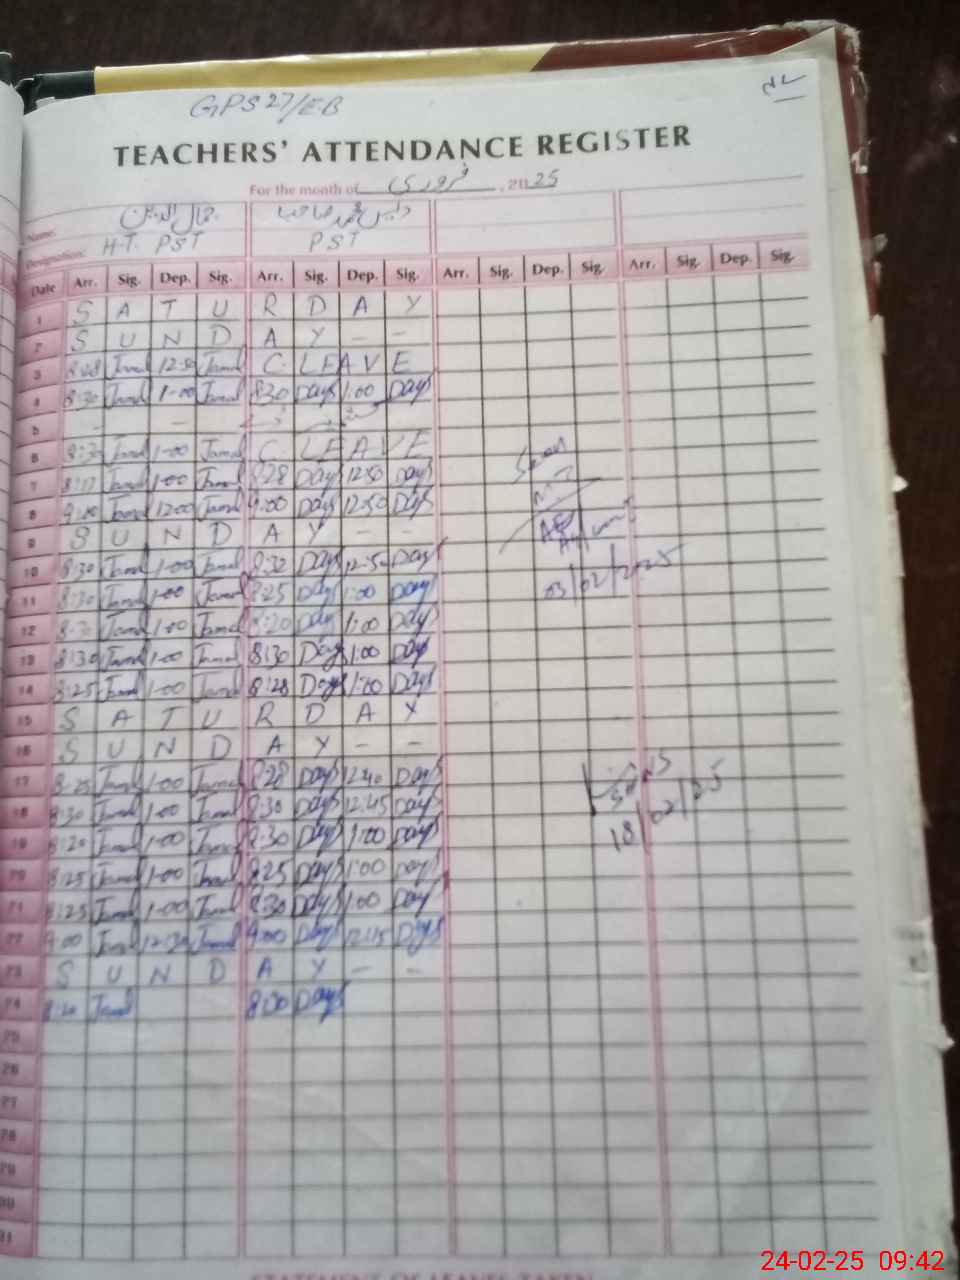 GPS 27/EB
TEACHERS' ATTENDANCE REGISTER
For the month of فروری, 2025
Name: جمال الدین
Designation: H.T. PST PST
Date Arr. Sig. Dep. Sig. Arr. Sig. Dep. Sig. Arr. Sig. Dep. Sig. Arr. Sig. Dep. Sig.
1 S A T U R D A Y
2 S U N D A Y - -
3 Jamal Jamal C. LEAVE
4 8:30 Jamal 1-00 Jamal 8:30 Days 1:00 Days
5 - - -
6 8:30 Jamal 1-00 Jamal C. LEAVE
7 8:17 Jamal 1-00 Jamal 8:28 Days 12:50 Days
8 Jamal 12:00 Jamal 9:00 Days 12:50 Days
9 S U N D A Y - -
10 8:30 Jamal 1-00 Jamal 8:32 Days 12:50 Days
03/02/2025
11 8:30 Jamal 1-00 Jamal 8:25 Days 1:00 Days
12 8:30 Jamal 1-00 Jamal 8:20 Days 1:00 Days
13 8:30 Jamal 1-00 Jamal 8:30 Days 1:00 Days
14 8:25 Jamal 1-00 Jamal 8:28 Days 1:00 Days
15 S A T U R D A Y
16 S U N D A Y - -
17 8:25 Jamal 1-00 Jamal 8:28 Days 12:40 Days
18 8:30 Jamal 1-00 Jamal 8:30 Days 12:45 Days
18/02/25
19 8:20 Jamal 1-00 Jamal 8:30 Days 1:00 Days
20 8:25 Jamal 1-00 Jamal 8:25 Days 1:00 Days
21 8:25 Jamal 1-00 Jamal 8:30 Days 1:00 Days
22 9:00 Jamal 12:30 Jamal 9:00 Days 12:15 Days
23 S U N D A Y - -
24 Jamal 8:30 Days
25
26
27
28
29
30
31
STATEMENT OF LEAVES TAKEN
24-02-25 09:42